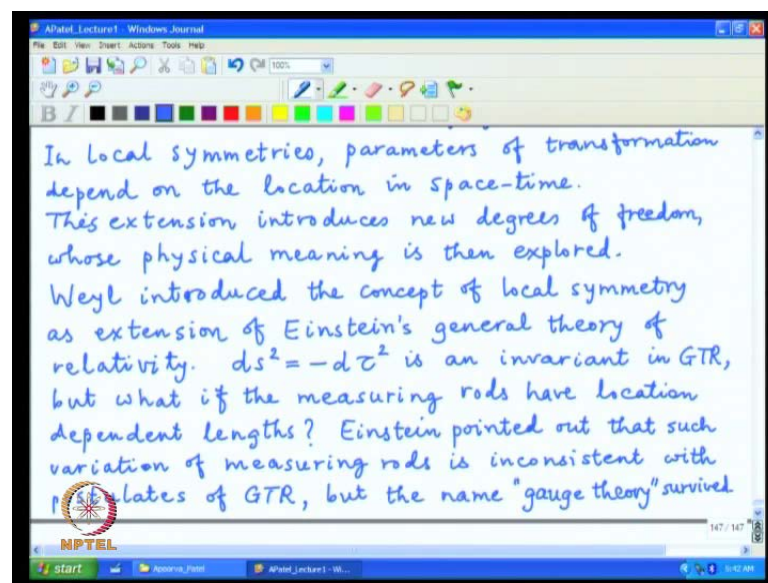 APatel_Lecture1 - Windows Journal
File Edit View Insert Actions Tools Help
100%
B I
In local symmetries, parameters of transformation
depend on the location in space-time.
This extension introduces new degrees of freedom,
whose physical meaning is then explored.
Weyl introduced the concept of local symmetry
as extension of Einstein's general theory of
relativity. ds² = -dτ² is an invariant in GTR,
but what if the measuring rods have location
dependent lengths? Einstein pointed out that such
variation of measuring rods is inconsistent with
postulates of GTR, but the name "gauge theory" survived
147 / 147
NPTEL
start Apoorva_Patel APatel_Lecture1 - Wi... 5:42 AM